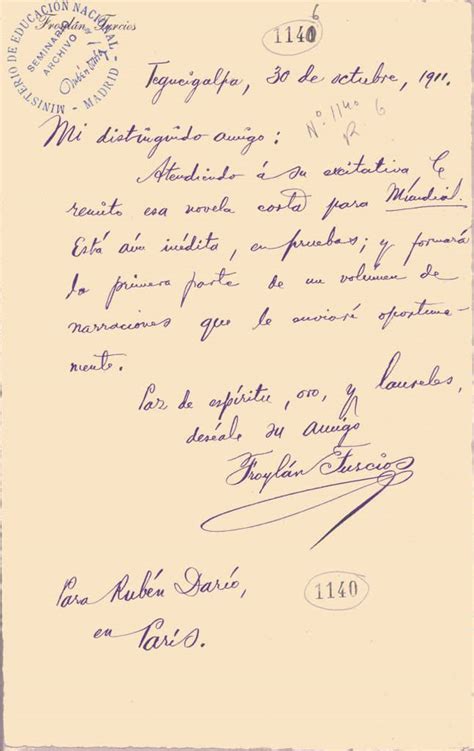 6
1140
Froylán Turcios
MINISTERIO DE EDUCACIÓN NACIONAL - MADRID -
SEMINARIO
ARCHIVO
Tegucigalpa, 30 de octubre, 1911.
Nº 1140
6
Mi distinguido amigo:
Atendiendo á su excitativa, le
remito esa novela corta para Mundial.
Está aún inédita, en pruebas; y formará
la primera parte de un volúmen de
narraciones que le enviaré oportuna-
mente.
Paz de espíritu, oro, y laureles,
deséale su amigo
Froylán Turcios
Para Rubén Darío,
1140
en
París.